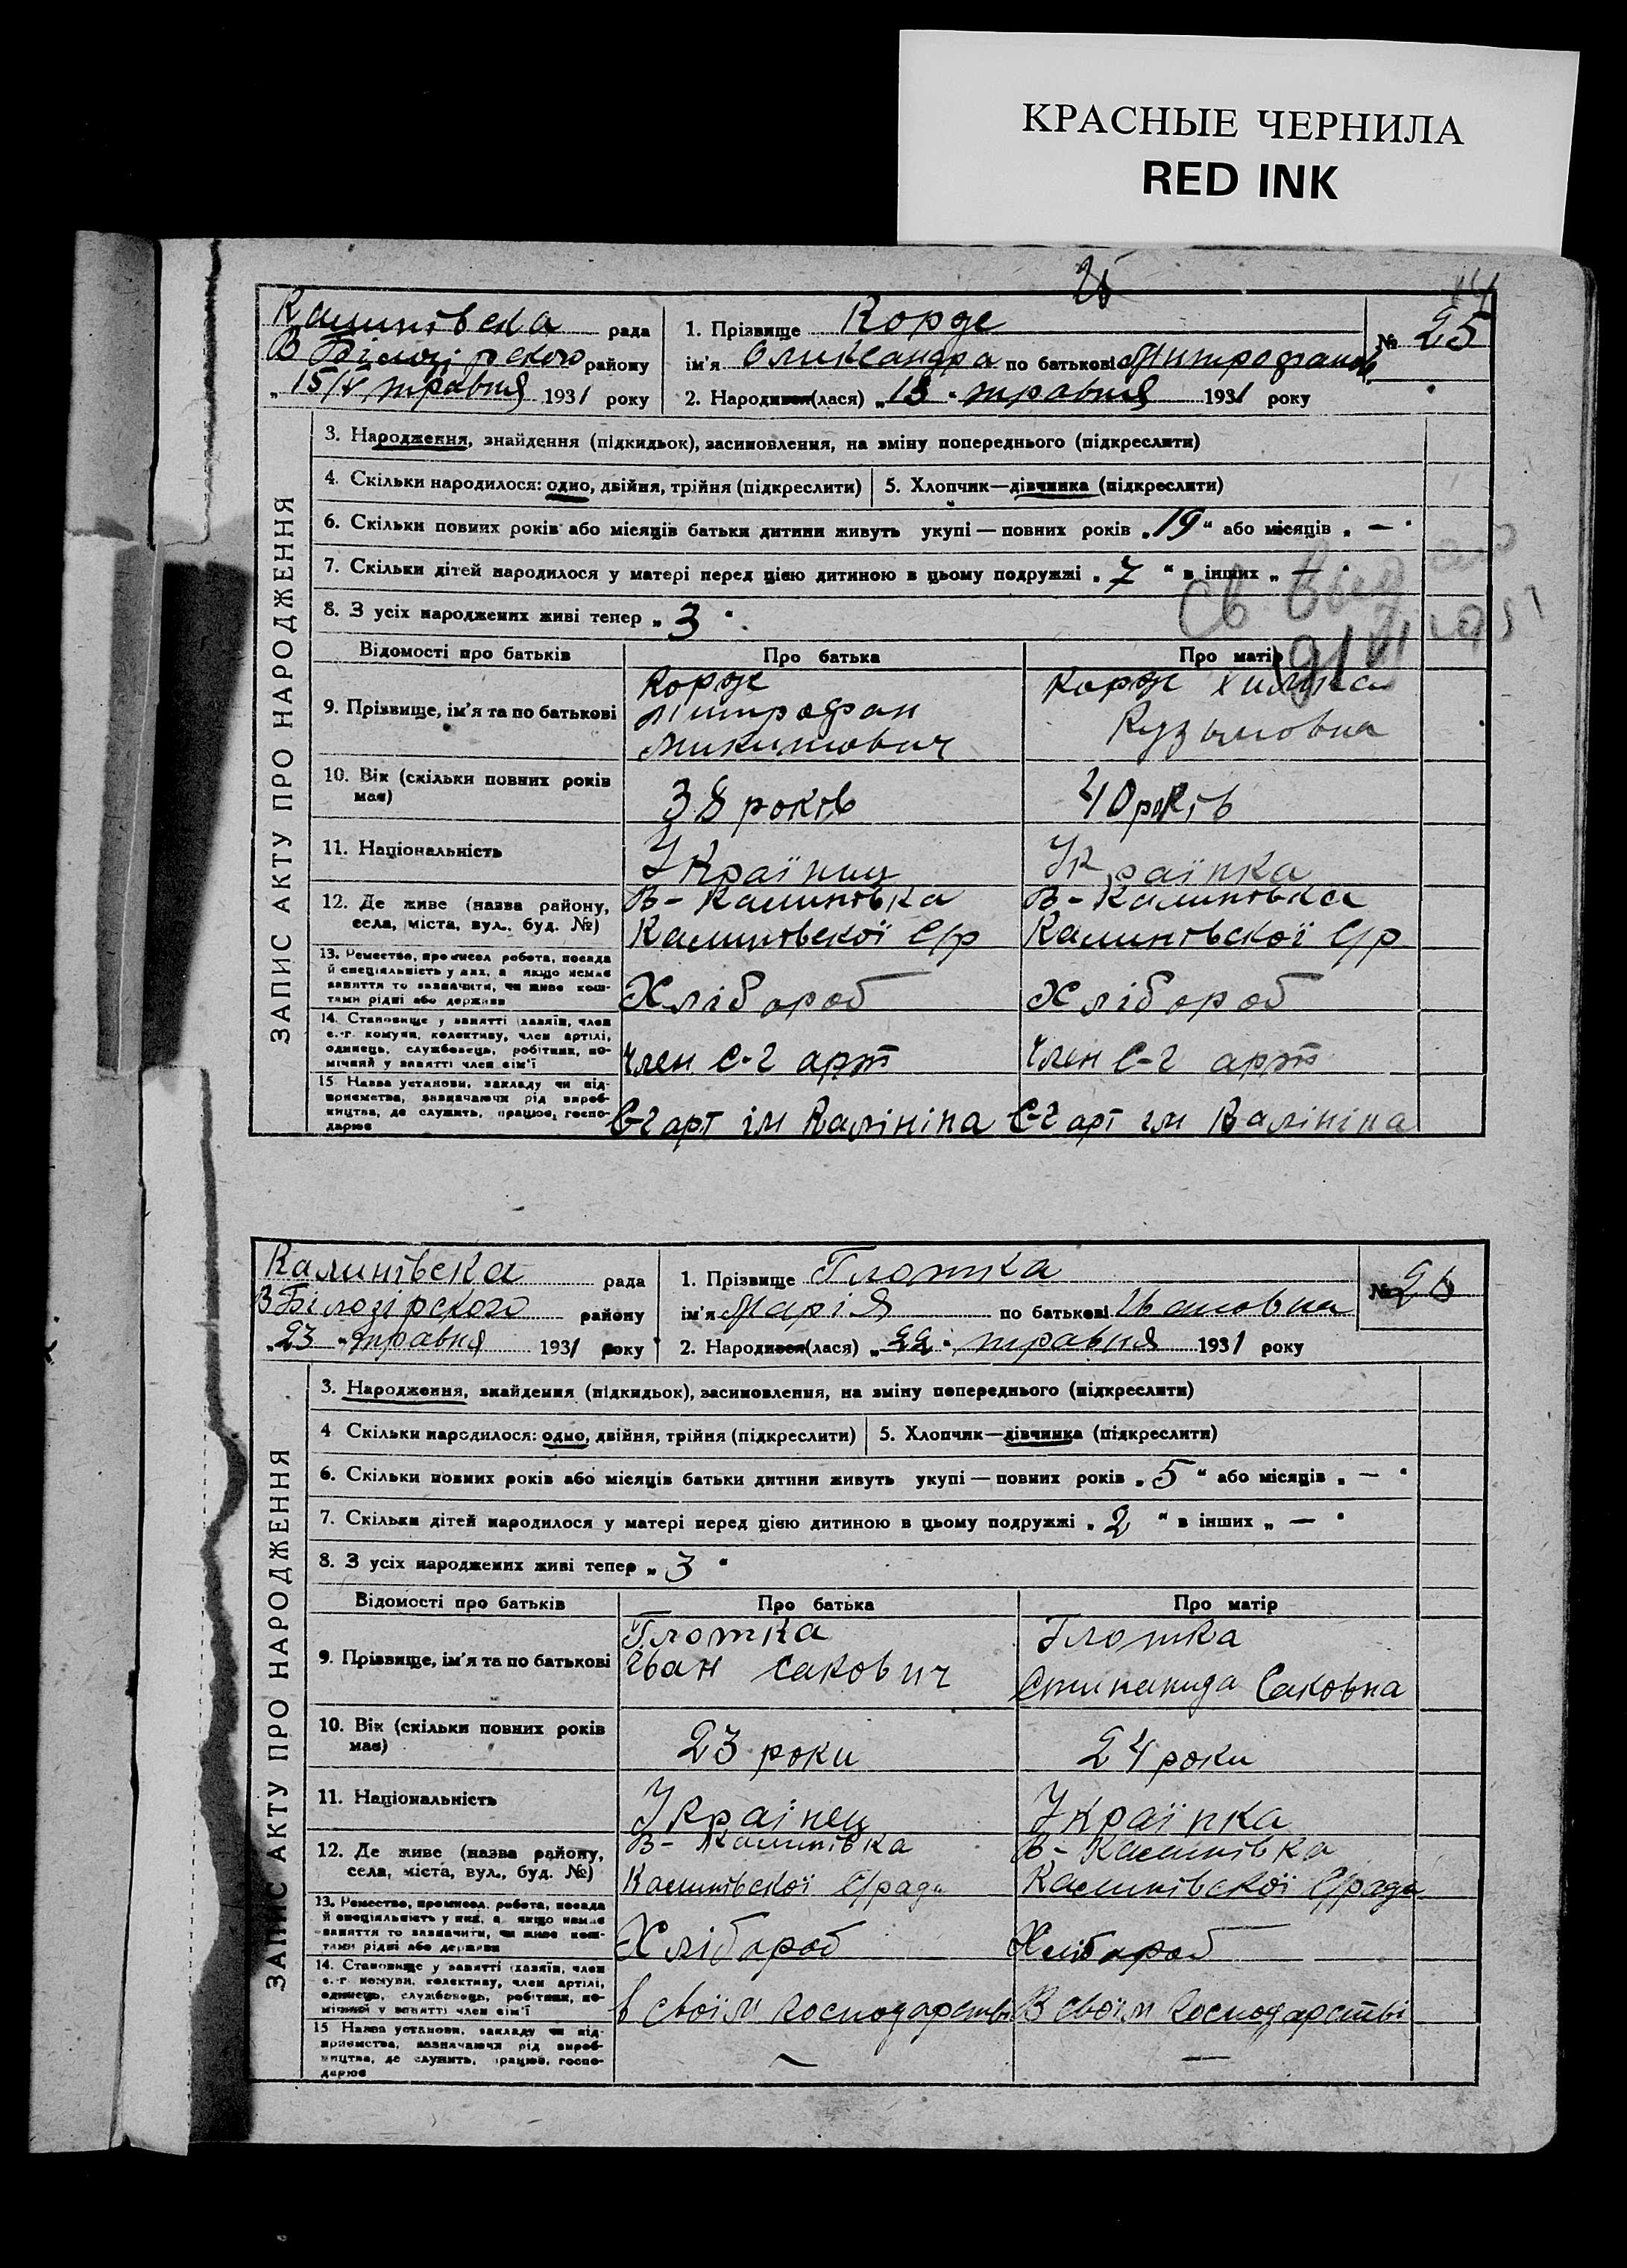 КРАСНЫЕ ЧЕРНИЛА
RED INK
14
Калинівська рада
В Білозірського району
„15/V травня 1931 року
1. Прізвище Корж
ім'я Олександра по батькові Митрофанов.
2. Народився(лася) „13“ травня 1931 року
№ 25
ЗАПИС АКТУ ПРО НАРОДЖЕННЯ
3. Народження, знайдення (підкидьок), засиновлення, на зміну попереднього (підкреслити)
4. Скільки народилося: одно, двійня, трійня (підкреслити) 5. Хлопчик—дівчинка (підкреслити)
6. Скільки повних років або місяців батьки дитини живуть укупі — повних років „19“ або місяців „—“
7. Скільки дітей народилося у матері перед цією дитиною в цьому подружжі „7“ в інших „—“
8. З усіх народжених живі тепер „3“
Св 1951
Відомості про батьків Про батька Про матір
9. Прізвище, ім'я та по батькові
Корж
Митрофан
Микитович
Корж Химка
Кузьмовна
10. Вік (скільки повних років
має)
38 років
40 років
11. Національність
Українец
Українка
12. Де живе (назва району,
села, міста, вул., буд. №)
В-Калинівка
Калинівської С/р
В-Калинівка
Калинівської С/р
13. Ремество, промисел робота, посада
й спеціяльність у них, а якщо немає
заняття то зазначити, чи живе кош-
тами рідні або держави
Хлібороб
Хлібороб
14. Становище у занятті (хазяїн, член
с.-г. комуни, колективу, член артілі,
одинець, службовець, робітник, по-
мічний у занятті член сім'ї
Член С-г арт
Член С-г арт
15. Назва установи, закладу чи під-
приємства, зазначаючи рід вироб-
ництва, де служить, працює, госпо-
дарює
С-г арт ім Калініна
С-г арт ім Калініна
Калинівська рада
В Білозірського району
„23“ травня 1931 року
1. Прізвище Глотка
ім'я Марія по батькові Івановна
2. Народився(лася) „22“ травня 1931 року
№ 26
ЗАПИС АКТУ ПРО НАРОДЖЕННЯ
3. Народження, знайдення (підкидьок), засиновлення, на зміну попереднього (підкреслити)
4 Скільки народилося: одно, двійня, трійня (підкреслити) 5. Хлопчик—дівчинка (підкреслити)
6. Скільки повних років або місяців батьки дитини живуть укупі — повних років „5“ або місяців „—“
7. Скільки дітей народилося у матері перед цією дитиною в цьому подружжі „2“ в інших „—“
8. З усіх народжених живі тепер „3“
Відомості про батьків Про батька Про матір
9. Прізвище, ім'я та по батькові
Глотка
Іван Сакович
Глотка
Степанида Саковна
10. Вік (скільки повних років
має)
23 роки
24 роки
11. Національність
Українец
Українка
12. Де живе (назва району,
села, міста, вул., буд. №)
В-Калинівка
Калинівської С/ради
В-Калинівка
Калинівської С/ради
13. Ремество, промисел. робота, посада
й спеціяльність у них, а якщо немає
заняття то зазначити, чи живе кош-
тами рідні або держави
Хлібороб
Хлібороб
14. Становище у занятті (хазяїн, член
с.-г комуни, колективу, член артілі,
одинець, службовець, робітник, по-
мічний у занятті член сім'ї
в своїм господарстві
В своїм господарстві
15 Назва установи, закладу чи під-
приємства, зазначаючи рід вироб-
ництва, де служить, працює, госпо-
дарює
—
—